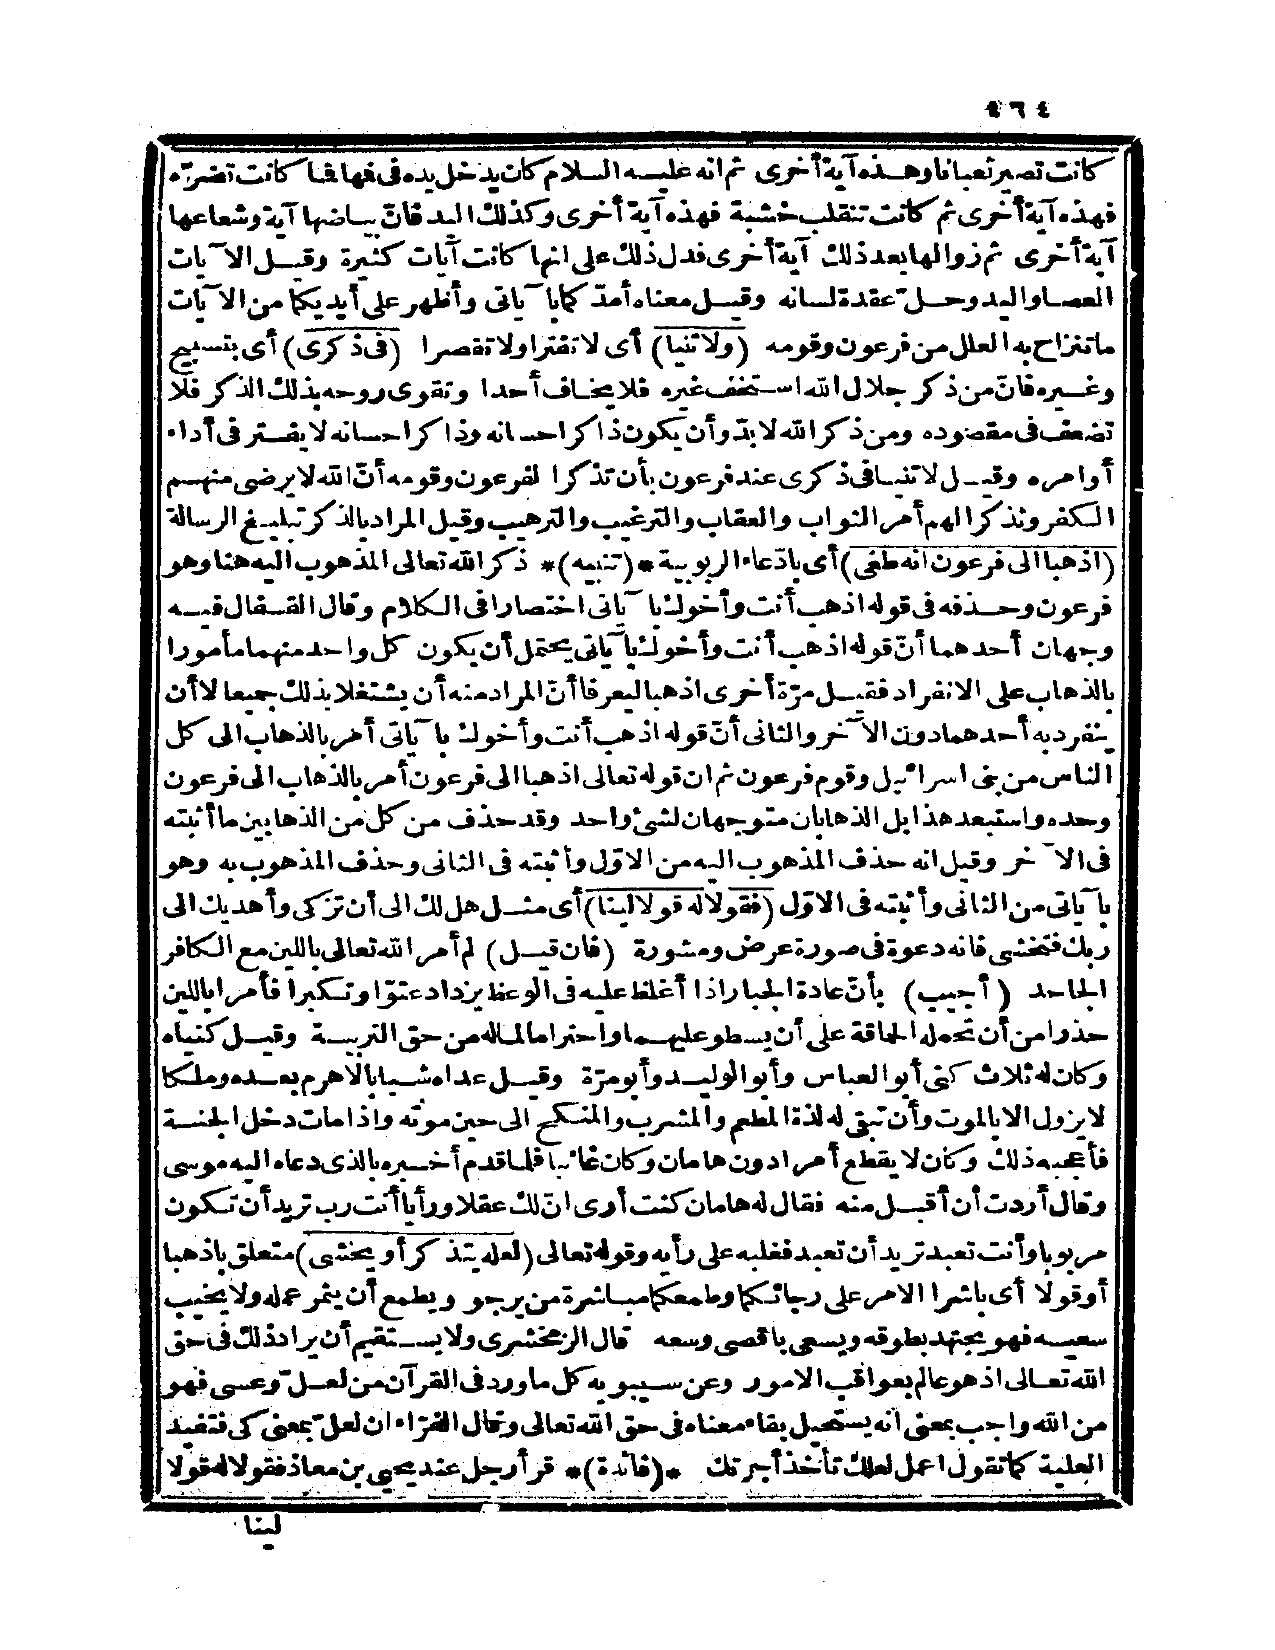 ٤٦٤
كانت تصير ثعبانا وهذه آية أخرى ثم انه عليه السلام كان يدخل يده فى فيها فما كانت تضرّه
فهذه آية أخرى ثم كانت تنقلب خشبة فهذه آية أخرى وكذلك اليد فانّ بياضها آية وشعاعها
آية أخرى ثم زوالها بعد ذلك آية أخرى فدل ذلك على انها كانت آيات كثيرة وقيل الآيات
العصا واليد وحلّ عقدة لسانه وقيل معناه أمدّ كما بآياتى وأظهر على أيديكما من الآيات
ما تنزاح به العلل من فرعون وقومه (ولا تنيا) أى لا تفترا ولا تقصرا (فى ذكرى) أى بتسبيح
وغيره فانّ من ذكر جلال الله استخف غيره فلا يخاف أحدا وتقوى روحه بذلك الذكر فلا
تضعف فى مقصوده ومن ذكر الله لا بدّ وأن يكون ذاكرا احسانه وذاكرا حسانه لا يفتر فى أداء
أوامره وقيل لا تنيا فى ذكرى عند فرعون بأن تذكرا لفرعون وقومه أنّ الله لا يرضى منهم
الكفر وتذكرا لهم أمر الثواب والعقاب والترغيب والترهيب وقيل المراد بالذكر تبليغ الرسالة
(اذهبا الى فرعون انه طغى) أى بادّعاء الربوبية *(تنبيه)* ذكر الله تعالى المذهوب اليه هنا وهو
فرعون وحذفه فى قوله اذهب أنت وأخوك بآياتى اختصارا فى الكلام وقال القفال فيه
وجهان أحدهما أنّ قوله اذهب أنت وأخوك بآياتى يحتمل أن يكون كل واحد منهما مأمورا
بالذهاب على الانفراد فقيل مرّة أخرى اذهبا ليعرفا أنّ المراد منه أن يشتغلا بذلك جميعا لا أن
ينفرد به أحدهما دون الآخر والثانى أنّ قوله اذهب أنت وأخوك بآياتى أمر بالذهاب الى كل
الناس من بنى اسرائيل وقوم فرعون ثم ان قوله تعالى اذهبا الى فرعون أمر بالذهاب الى فرعون
وحده واستبعد هذا بل الذهابان متوجهان لشئ واحد وقد حذف من كل من الذهابين ما أثبته
فى الآخر وقيل انه حذف المذهوب اليه من الاوّل وأثبته فى الثانى وحذف المذهوب به وهو
بآياتى من الثانى وأثبته فى الاوّل (فقولا له قولا لينا) أى مثل هل لك الى أن تزكى وأهديك الى
ربك فتخشى فانه دعوة فى صورة عرض ومشورة (فان قيل) لم أمر الله تعالى باللين مع الكافر
الجاحد (أجيب) بأنّ عادة الجبار اذا أغلظ عليه فى الوعظ يزداد عتوّا وتكبرا فأمرا باللين
حذرا من أن تحمله الحماقة على أن يسطو عليهما واحتراما لماله من حق التربية وقيل كنياه
وكان له ثلاث كنى أبو العباس وأبو الوليد وأبو مرّة وقيل عداه شبابا لا هرم بعده وملكا
لا يزول الا بالموت وأن تبقى له لذة المطعم والمشرب والمنكح الى حين موته واذا مات دخل الجنة
فأعجبه ذلك وكان لا يقطع أمرا دون هامان وكان غائبا فلما قدم أخبره بالذى دعاه اليه موسى
وقال أردت أن أقبل منه فقال له هامان كنت أرى انّ لك عقلا ورأيا أنت رب تريد أن تكون
مربوبا وأنت تعبد تريد أن تعبد فغلبه على رأيه وقوله تعالى (لعله يتذكر أو يخشى) متعلق باذهبا
أو قولا أى باشرا الامر على رجائكما وطمعكما مباشرة من يرجو ويطمع أن يثمر عمله ولا يخيب
سعيه فهو يجتهد بطوقه ويسعى باقصى وسعه قال الزمخشرى ولا يستقيم أن يراد ذلك فى حق
الله تعالى اذ هو عالم بعواقب الامور وعن سيبويه كل ما ورد فى القرآن من لعلّ وعسى فهو
من الله واجب بمعنى أنه يستحيل بقاء معناه فى حق الله تعالى وقال الفرّاء ان لعلّ بمعنى كى فتفيد
العلية كما تقول اعمل لعلك تأخذ أجرتك *(فائدة)* قرأ رجل عند يحيى بن معاذ فقولا له قولا
لينا